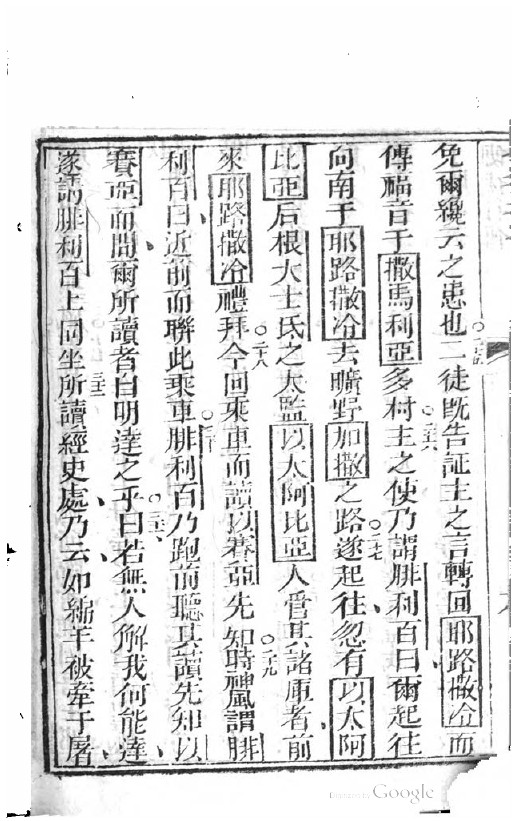 免爾纔云之患也○二十五二徒既告証主之言轉回耶路撒冷而
傳福音于撒馬利亞多村○二十六主之使乃謂腓利百曰爾起往
向南于耶路撒冷去曠野加撒之路○二十七遂起往忽有以太阿
比亞后根大士氏之太監以太阿比亞人管其諸庫者前
來耶路撒冷禮拜○二十八今回乘車而讀以賽亞先知○二十九時神風謂腓
利百曰近前而聯此乘車○三十腓利百乃跑前聽其讀先知以
賽亞而問爾所讀者自明達之乎○三十一曰若無人解我何能達
遂請腓利百上同坐○三十二所讀經史處乃云如綿羊被牽于屠
Google